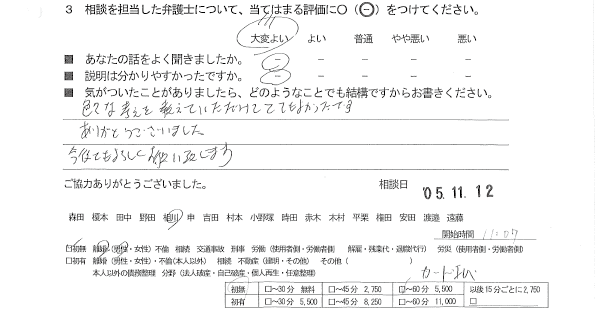 3 相談を担当した弁護士について、当てはまる評価に〇(⊖)をつけてください。
大変よい よい 普通 やや悪い 悪い
■ あなたの話をよく聞きましたか。 - - - - -
■ 説明は分かりやすかったですか。 - - - - -
■ 気がついたことがありましたら、どのようなことでも結構ですからお書きください。
色々な考えを教えていただけてとてもよかったです
ありがとうございました
今後ともよろしくお願い致します
ご協力ありがとうございました。 相談日 '05.11.12
森田 榎本 田中 野田 相川 申 吉田 村本 小野塚 時田 赤木 木村 平栗 権田 安田 渡邉 遠藤
開始時間 11:07
□初無 離婚(男性・女性)不倫 相続 交通事故 刑事 労働(使用者側・労働者側) 解雇・残業代・退職代行) 労災(使用者側・労働者側)
□初有 離婚(男性・女性)不倫(本人以外) 相続 不動産(建明・その他) その他(
本人以外の債務整理 分野(法人破産・自己破産・個人再生・任意整理)
カード払
初無 □~30分 無料 □~45分 2,750 □~60分 5,500 以後15分ごとに2,750
初有 □~30分 5,500 □~45分 8,250 □~60分 11,000 □